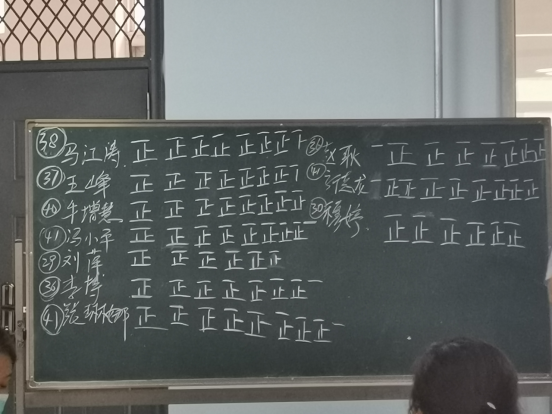 ㊳ 马江涛 正 正 正 正 正 正 正 下
㊲ 王峰 正 正 正 正 正 正 正 丅
㊵ 牛增慧 正 正 正 正 正 正 正 正
冯小平 正 正 正 正 正 正 正 正
㉙ 刘萍 正 正 正 正 正 止
㊱ 李博 正 正 正 正 正 正 正 一
㊶ 正 正 正 正 正 正 正 正 一
耿 正 正 正 正 正 正 正
正 正 正 正 正 正 正 正
㉚ 穆婷 正 正 正 正 正 正